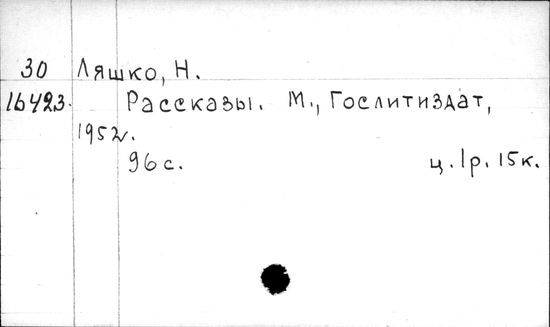 30 Ляшко, Н.
16423. Рассказы. М., Гослитиздат,
1952.
96 с. ц. 1р. 15к.